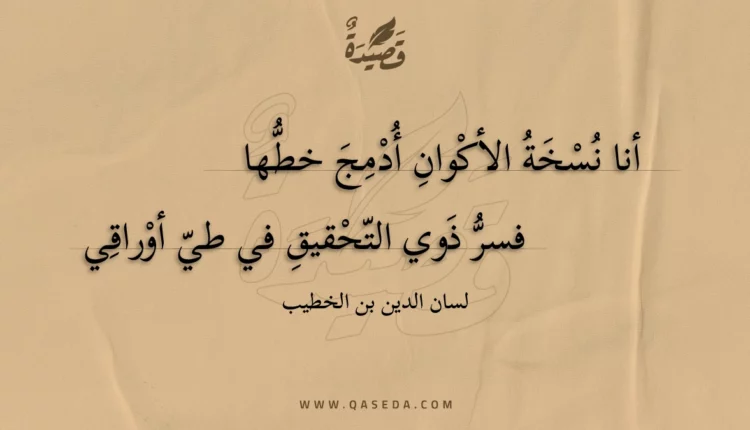 قَصِيدَةٌ
أنا نُسْخَةُ الأكْوانِ أُدْمِجَ خطُّها
فسرُّ ذَوي التّحْقيقِ في طيّ أوْراقِي
لسان الدين بن الخطيب
WWW.QASEDA.COM